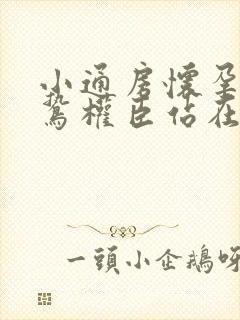 小通房懷孕
鷙權臣佔在
一頭小企鵝呀